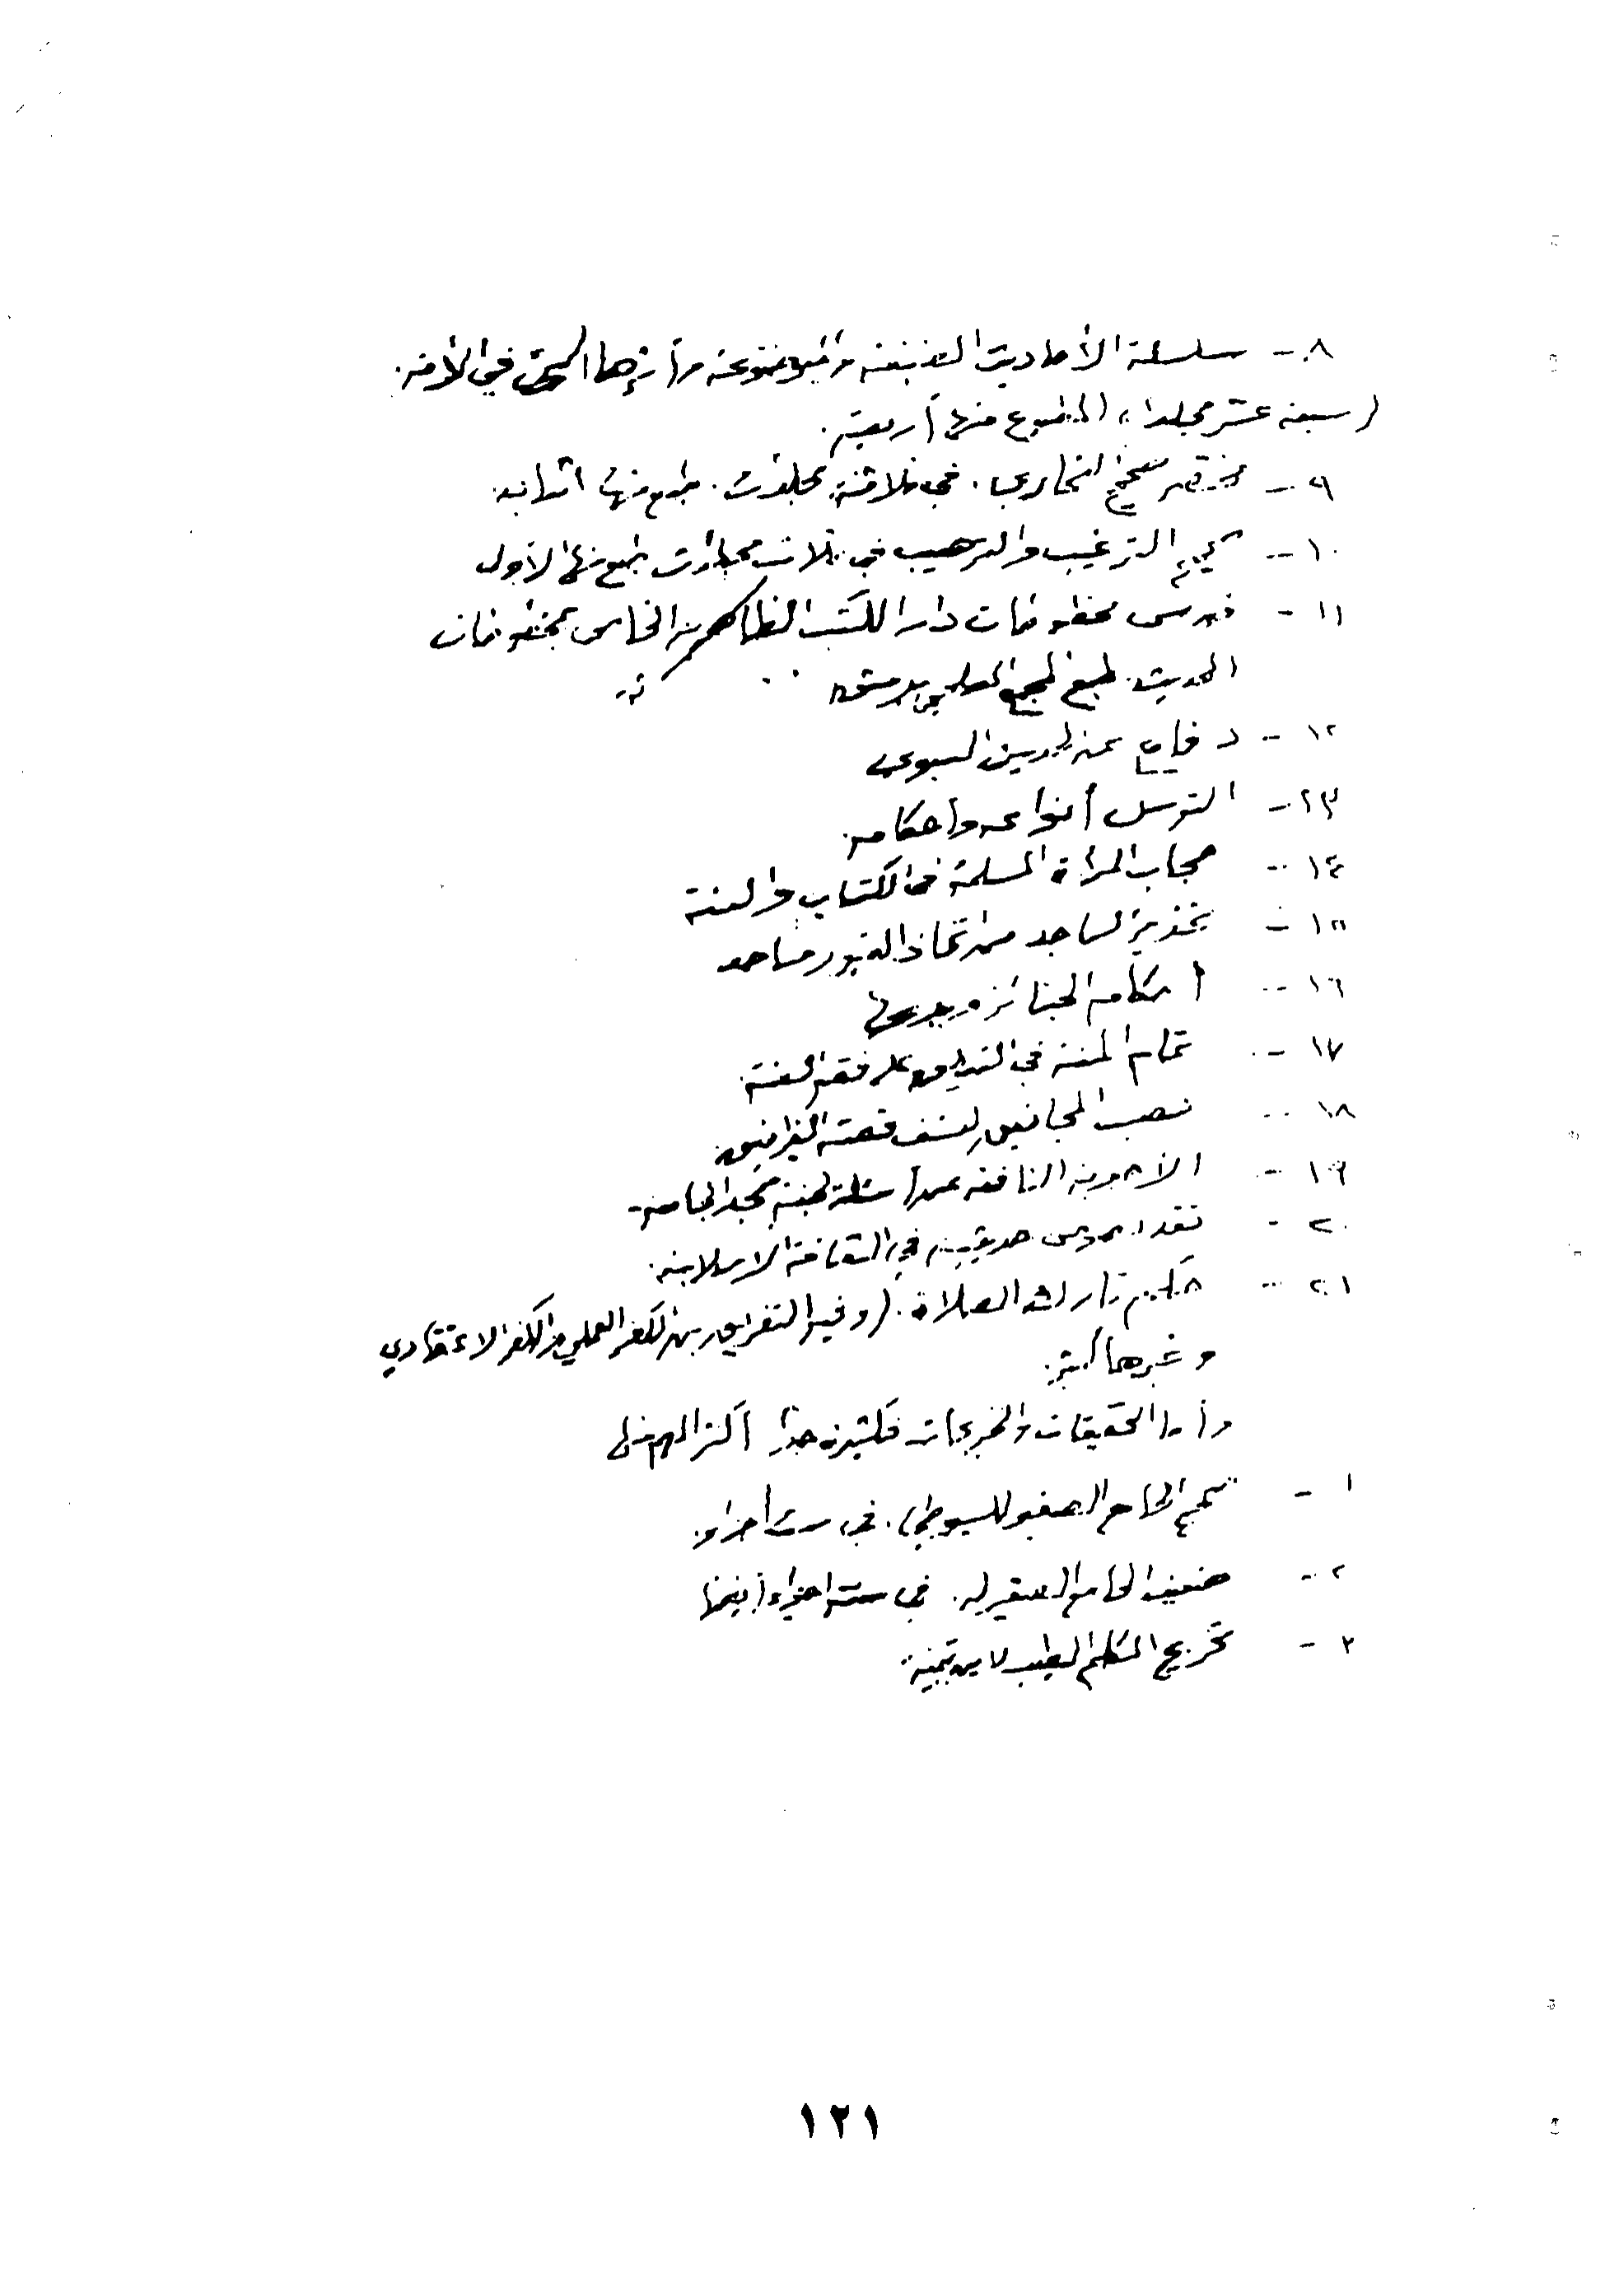 ٨ - سلسلة الأحاديث الضعيفة والموضوعة وأثرها السيئ في الأمة.
(سبعة عشر مجلدا، المطبوع منها أربعة.
٩ - مختصر صحيح البخاري. في ثلاثة مجلدات. طبع منها اثنان.
١٠ - صحيح الترغيب والترهيب في ثلاث مجلدات طبع منها الأول
١١ - فهرس مخطوطات دار الكتب الظاهرية الخاص بمخطوطات
الحديث. طبع المجمع العلمي بدمشق
١٢ - دفاع عن الحديث النبوي
١٣ - التوسل أنواعه وأحكامه
١٤ - حجاب المرأة المسلمة في الكتاب والسنة
١٥ - تحذير الساجد من اتخاذ القبور مساجد
١٦ - أحكام الجنائز وبدعها
١٧ - تمام المنة في التعليق على فقه السنة
١٨ - نصب المجانيق لنسف قصة الغرانيق
١٩ - الأجوبة النافعة عن أسئلة لجنة مسجد الجامعة
٢٠ - نقد نصوص حديثية في الثقافة الإسلامية.
٢١ - حكم تارك الصلاة. (وفيه التفريق بين الكفر العملي والكفر الاعتقادي
وغيرها كثير.
وأما التحقيقات والتخريجات فكثيرة جدا أكثر المهم منها
١ - صحيح الجامع الصغير للسيوطي. في ستة أجزاء.
٢ - ضعيف الجامع الصغير له. في ستة أجزاء أيضا
٣ - تخريج الكلم الطيب لابن تيمية.
١٢١